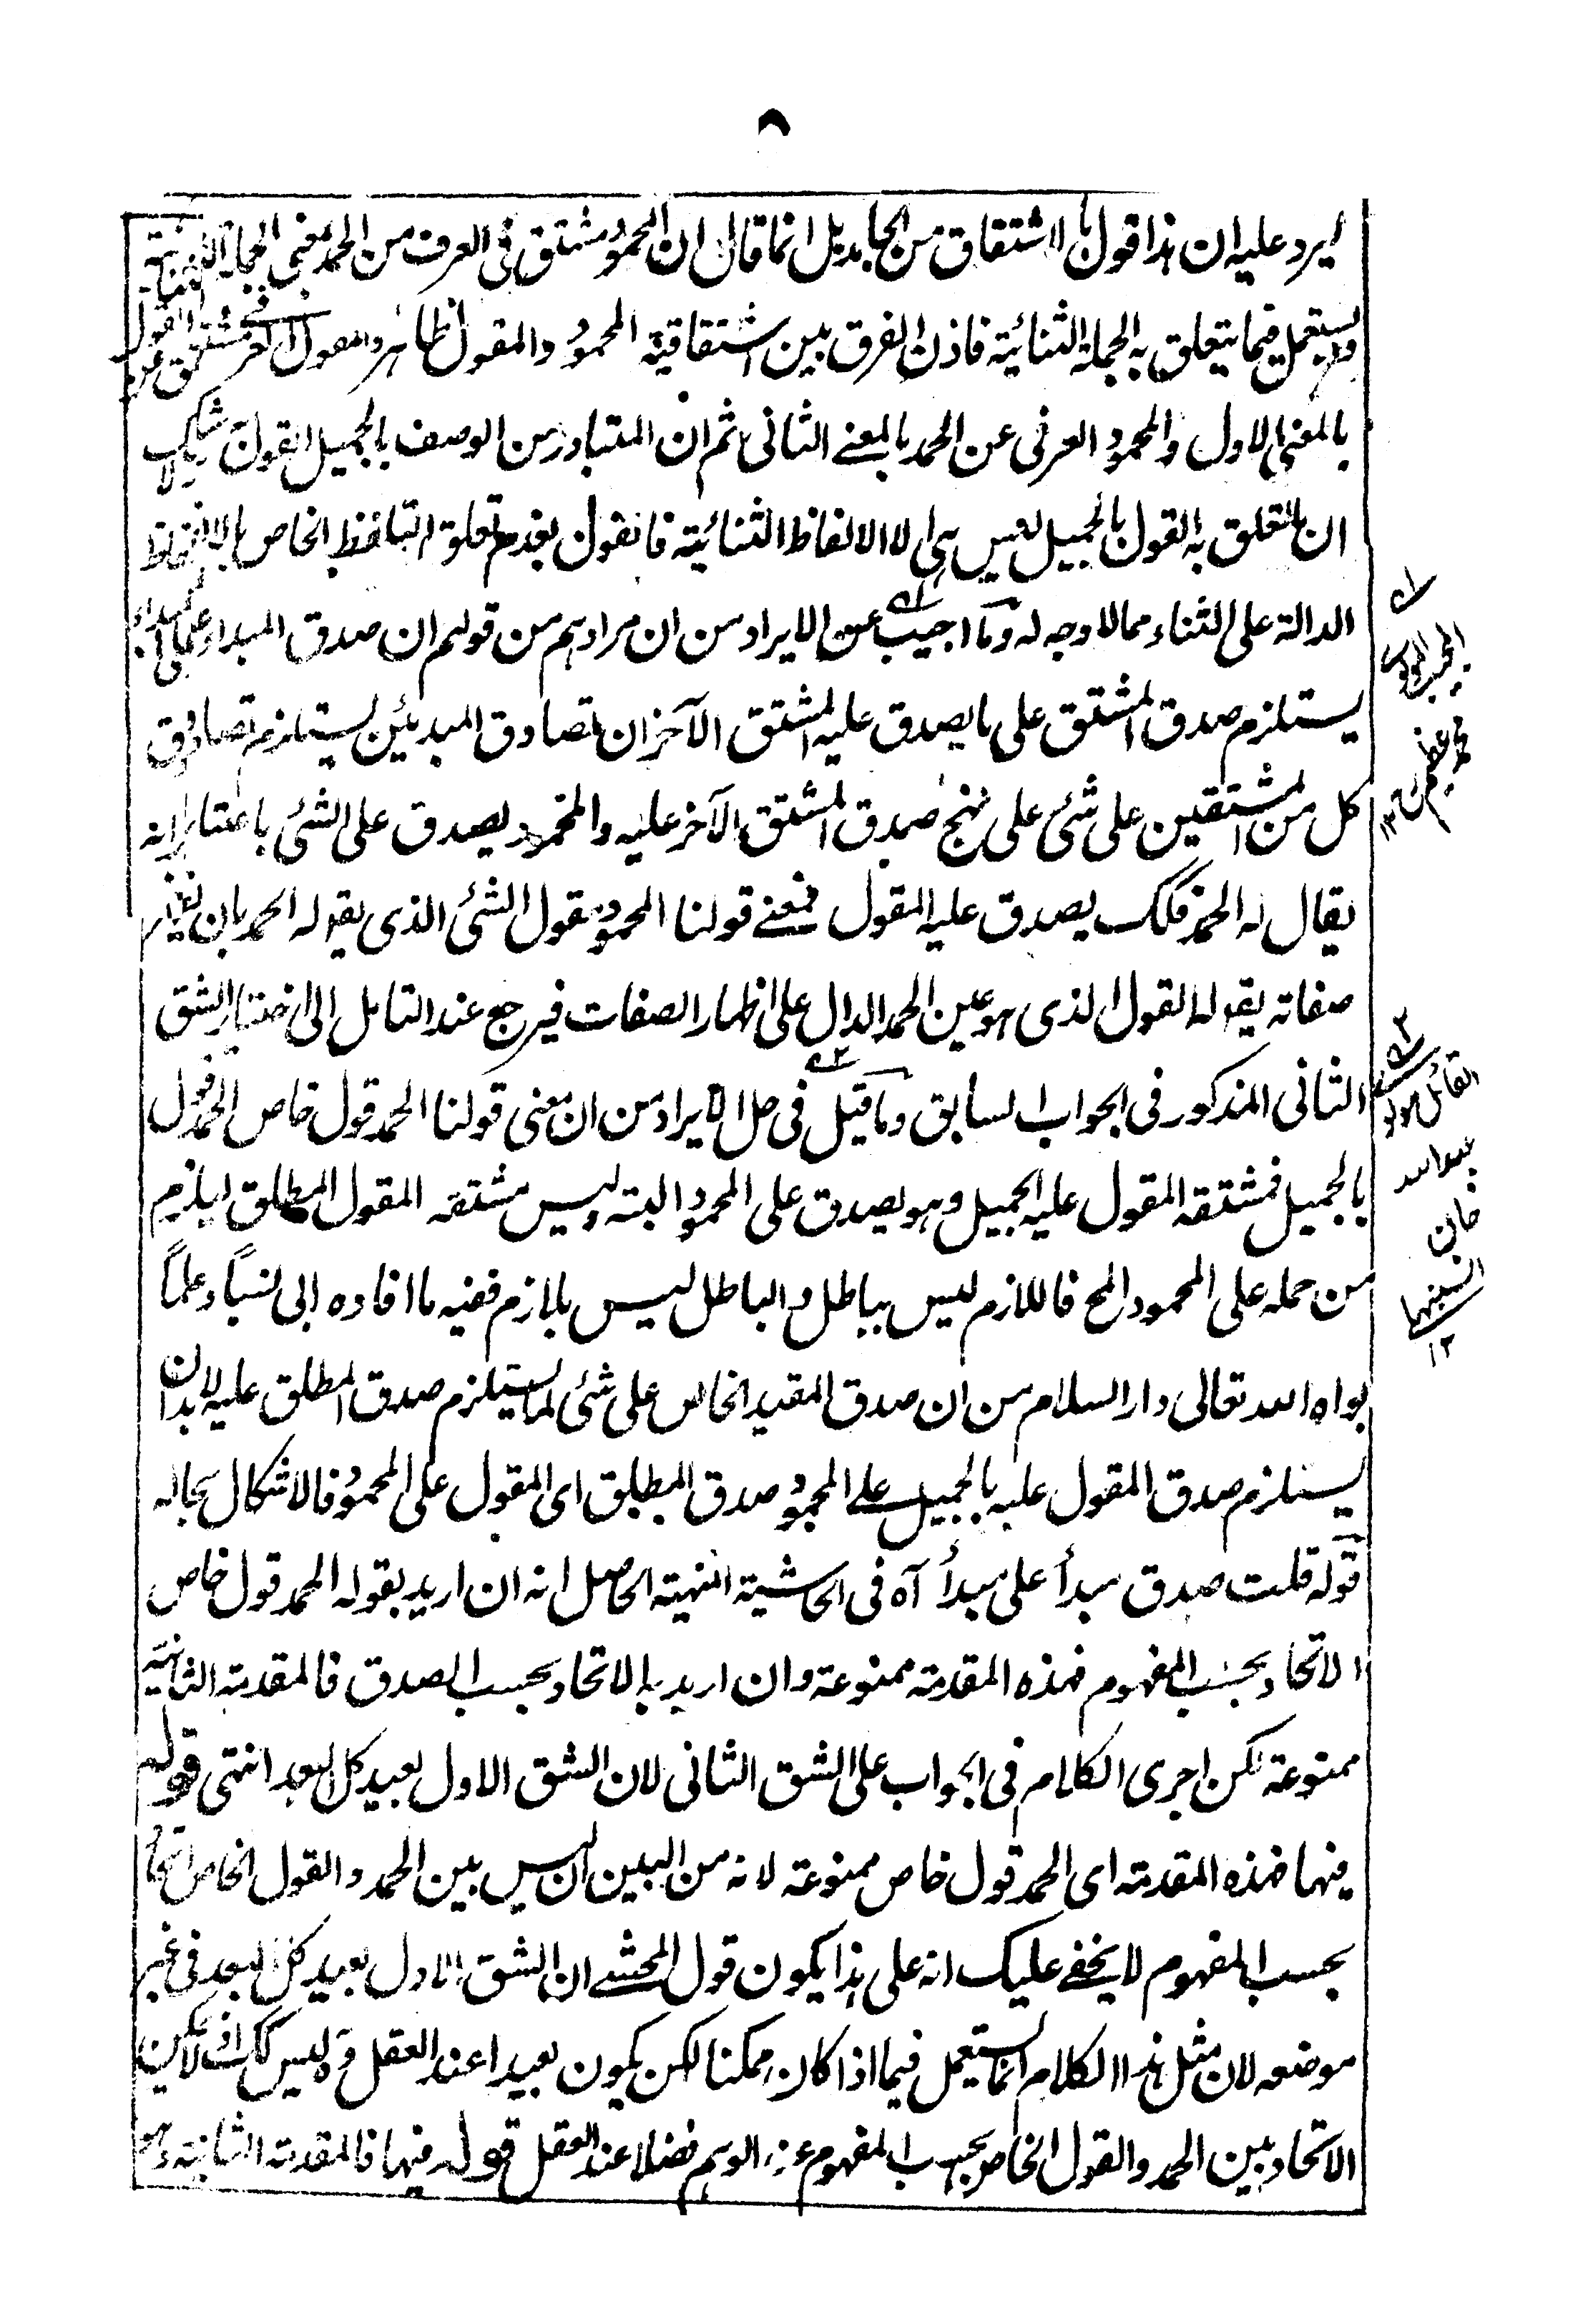 ٨
ايرد عليه ان هذا قول بالاشتقاق من الجامد بل انما قال ان المحمود مشتق في العرف من الحمد بمعنى الجملة الثنائية
ويستعمل فيما يتعلق به الجملة الثنائية فاذن الفرق بين اشتقاقية المحمود والمقول ظاهر والمقول العرفي مشتق عن القول
بالمعنى الاول والمحمود العرفي عن الحمد بالمعنى الثاني ثم ان المتبادر من الوصف بالجميل القول
ان ما يتعلق به القول بالجميل ليس هي الا الالفاظ الثنائية فالقول بعدم تعلق التلفظ الخاص بالالفاظ
الدالة على الثناء مما لا وجه له وما اجيب عن الايراد من ان مرادهم من قولهم ان صدق المبدأ على المبدأ
يستلزم صدق المشتق على ما يصدق عليه المشتق الآخر ان تصادق المبدئين يستلزم تصادق
كل من المشتقين على شئ على نهج صدق المشتق الآخر عليه والمحمود يصدق على الشئ باعتبار انه
يقال له الحمد فكك يصدق عليه المقول فمعنى قولنا المحمود مقول الشئ الذي يقوله الحمد بان
صفاته يقوله القول الذي هو عين الحمد الدال على اظهار الصفات فيرجع عند التامل الى اختيار الشق
الثاني المذكور في الجواب السابق وما قيل في حل الايراد من ان معنى قولنا الحمد قول خاص الحمد قول
بالجميل فمشتقه المقول عليه الجميل وهو يصدق على المحمود البتة وليس مشتقه المقول المطلق ليلزم
من حمله على المحمود الخ فاللازم ليس بباطل والباطل ليس بلازم ففيه ما افاده ابي نسباً وعلماً
بواه الله تعالى دار السلام من ان صدق المقيد الخاص على شئ لما يستلزم صدق المطلق عليه لا بد ان
يستلزم صدق المقول عليه بالجميل على المحمود صدق المطلق اى المقول على المحمود فالاشكال بحاله
قوله قلت صدق مبدأ على مبدأ آه في الحاشية المنهية الحاصل انه ان اريد بقوله الحمد قول خاص
الاتحاد بحسب المفهوم فهذه المقدمة ممنوعة وان اريد به الاتحاد بحسب الصدق فالمقدمة الثانية
ممنوعة لكن اجرى الكلام في الجواب على الشق الثاني لان الشق الاول بعيد كل البعد انتهى قوله
فيها فهذه المقدمة اى الحمد قول خاص ممنوعة لانه من البين ان ليس بين الحمد والقول الخاص اتحاد
بحسب المفهوم لا يخفى عليك انه على هذا يكون قول المحشى ان الشق الاول بعيد كل البعد في غير
موضعه لان مثل هذا الكلام انما يستعمل فيما اذا كان ممكنا لكن يكون بعيدا عند العقل وه ليس كك اذ لا يمكن
الاتحاد بين الحمد والقول الخاص بحسب المفهوم عند الوهم فضلا عند العقل قوله فيها فالمقدمة الثانية
المجيب المولوي
محمد عظيم
١٢
القائل المولوي
اسد الله
خان
١٢